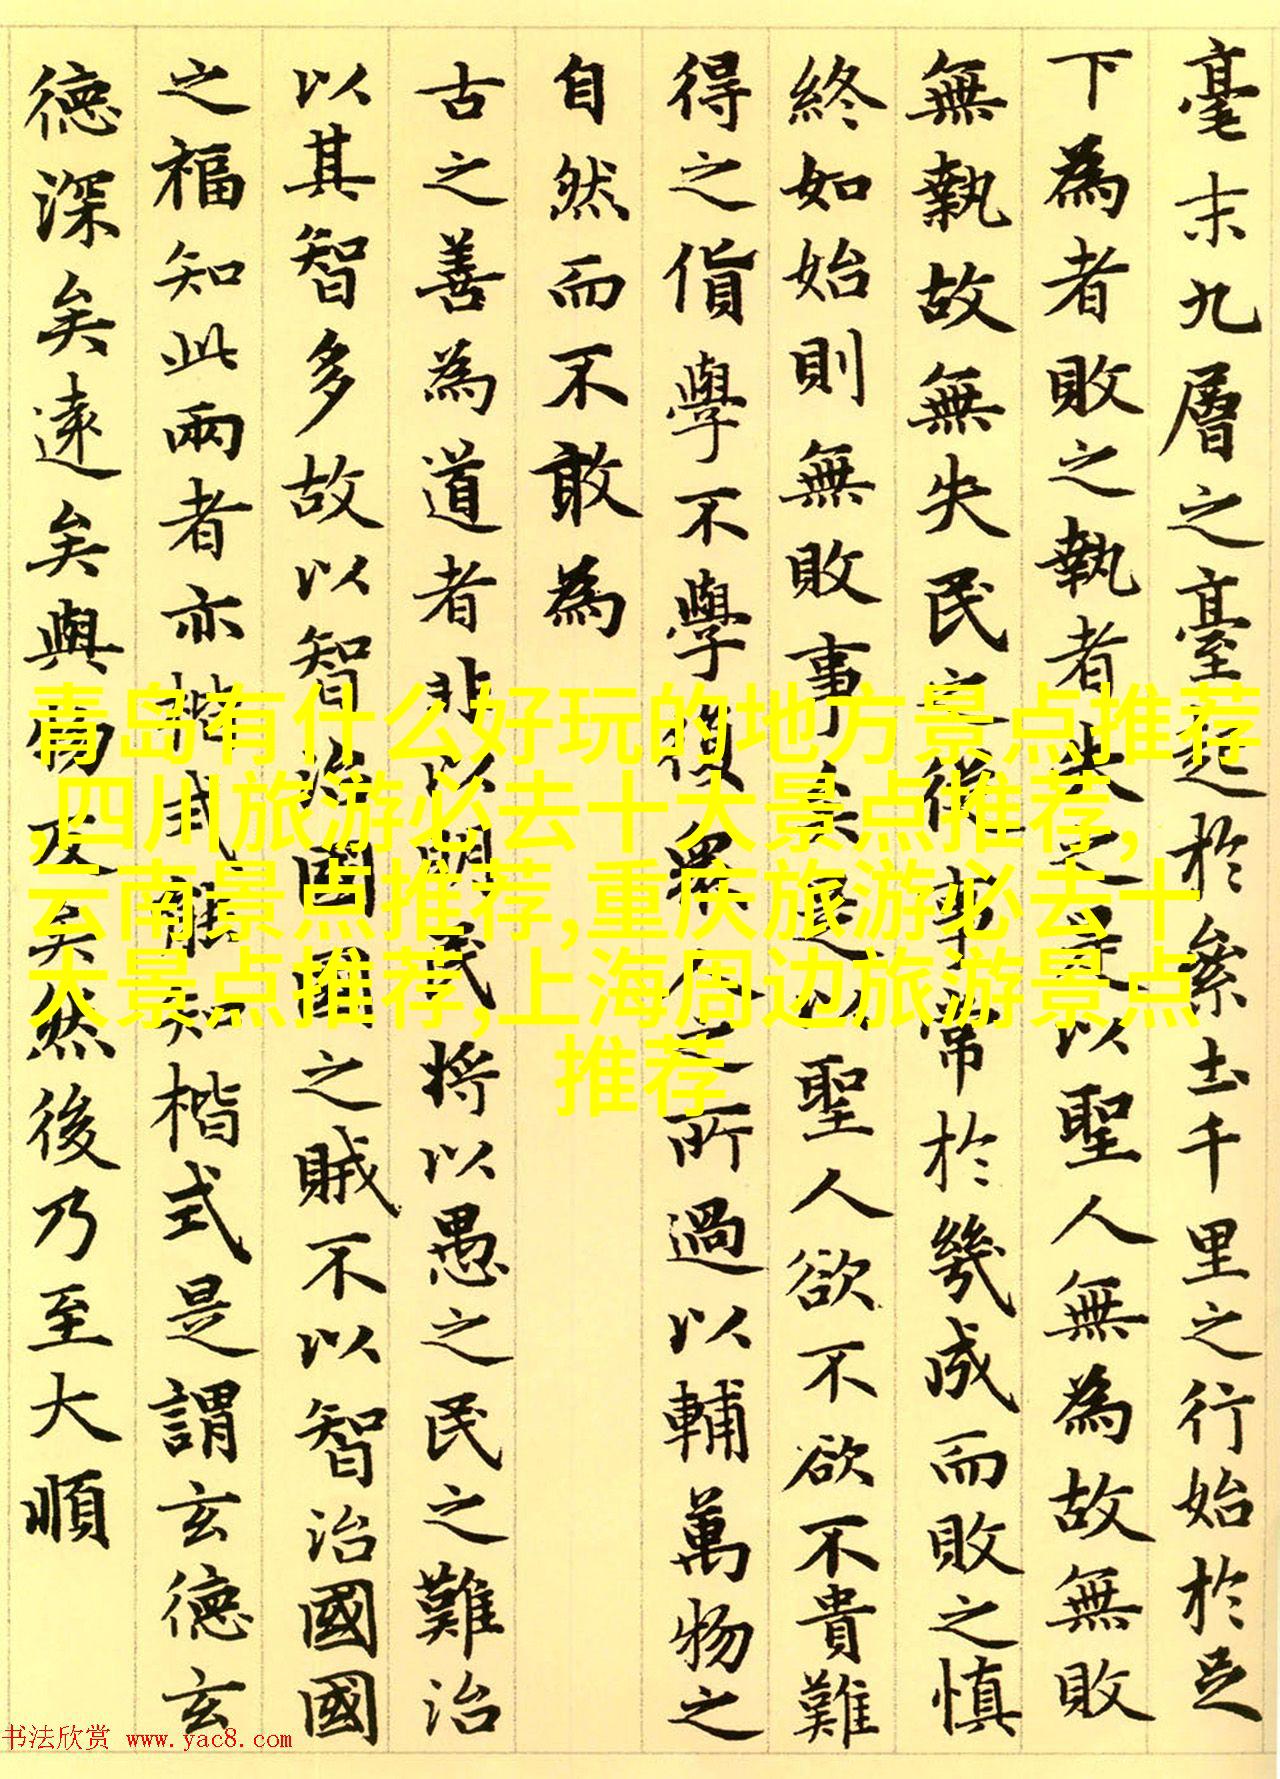 毫末九層之臺起於絫土千里之行始於足
下為者敗之執者失之是以聖人無為故無敗
無執故無失民之從事常於幾成而敗之慎
終如始則無敗事矣是以聖人欲不欲不貴難
得之貨學不學復眾人之所過以輔萬物之
自然而不敢為
古之善為道者非以明民将以愚之民之難治
以其智多故以智治國國之賊不以智治國國
之福知此兩者亦楷式能知楷式是謂玄德玄
德深矣遠矣與物反矣然後乃至大順
青岛有什么好玩的地方景点推荐
,四川旅游必去十大景点推荐,
云南景点推荐,重庆旅游必去十
大景点推荐,上海周边旅游景点
推荐
书法欣赏 www.yac8.com